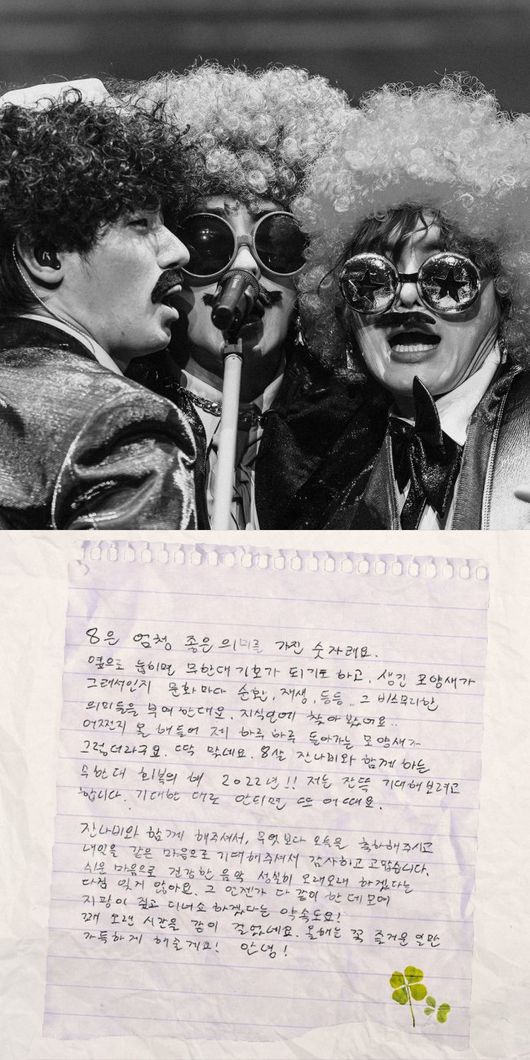 8은 엄청 좋은 의미를 가진 숫자래요.
옆으로 눕이면 무한대 기호가 되기도 하고, 생긴 모양새가
그래서인지 문화마다 순환, 재생, 등등.. 그 비스무리한
의미들을 부여한대요. 지식인에 찾아봤어요..
어쩐지 올해들어 제 하루 하루 돌아가는 모양새가
그렇더라구요. 딱 맞네요. 8살 잔나비와 함께 하는
무한대 회복의 해 2022년!! 저는 잔뜩 기대해보려고
합니다. 기대한 대로 안되면 또 어때요.
잔나비와 함께 해주셔서, 무엇보다 오늘을 축하해주시고
내일을 같은 마음으로 기대해주셔서 감사하고 고맙습니다.
쉬운 마음으로 건강한 음악 성실히 오래오래 하겠다는
다짐 잊지 않아요. 그 언젠가 다 같이 한데 모여
지팡이 짚고 디너쇼 하겠다는 약속도요!
꽤 오랜 시간을 같이 걸었네요. 올해는 꼭 즐거운 일만
가득하게 해줄게요! 안녕!